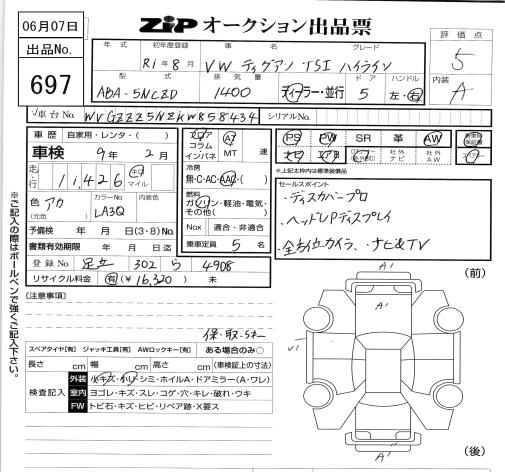 06月07日
ZIP オークション出品票
出品No.
697
評価点
5
内装
A
年式 初年度登録 車名 グレード
R1年8月 VW ティグアン TSI ハイライン
型式 排気量 ドア ハンドル
ABA-5NCZD 1400 ディーラー・並行 5 左・右
車台No. WVGZZZ5NZKW858434 シリアルNo.
車歴 自家用・レンタ・( )
車検 9年 2月
走行 11,426 キロ マイル
色 アカ (元色) カラーNo. LA3Q 内装色
予備検 年 月 日(3・8)No.
書類有効期限 年 月 日
登録No. 足立 302 ら 4908
リサイクル料金 有(¥16,320) 未
フロア コラム インパネ
AT
MT 速
冷房
無・C・AC・AAC・( )
燃料
ガソリン・軽油・電気・その他( )
Nox 適合・非適合
乗車定員 5 名
PS PW SR 革 AW
ナビ AW
※上記太枠内は標準装備品
セールスポイント
・ディスカバープロ
・ヘッドUPディスプレイ
・全方位カメラ、ナビ&TV
※ご記入の際はボールペンで強くご記入下さい。
[注意事項]
保・取・Sキー
スペアタイヤ[有] ジャッキ工具[有] AWロックキー[有] ある場合のみ○
長さ cm 幅 cm 高さ cm (車検証上の寸法)
検査記入
外装 小キズ・小U・シミ・ホイルA・ドアミラー(A・ワレ)
室内 ヨゴレ・キズ・スレ・コゲ・穴・キレ・破れ・ウキ
FW トビ石・キズ・ヒビ・リペア跡・X要ス
(前)
A'
A'
V1
A'
A''
(後)